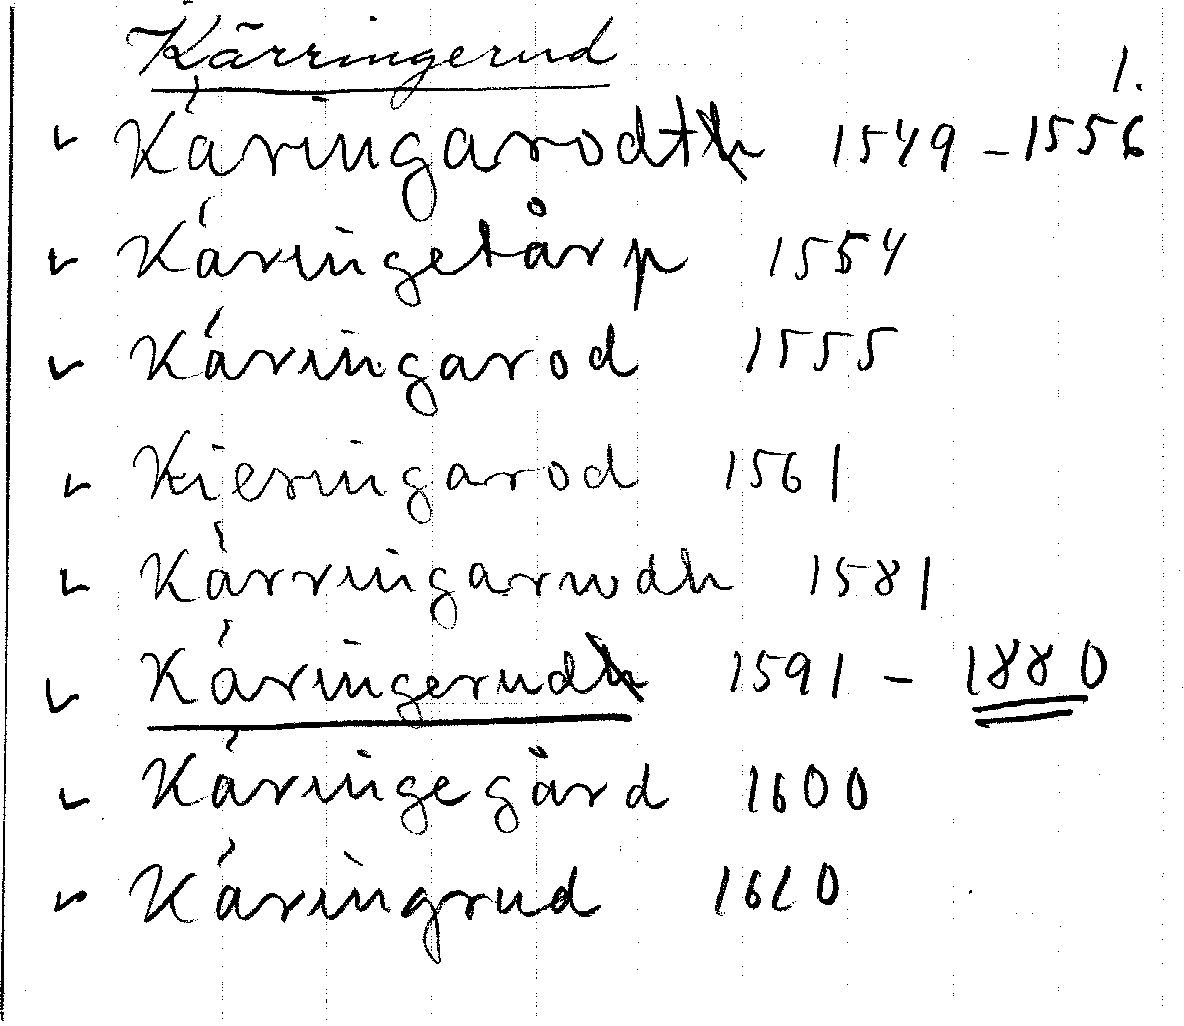 Kärringerud
1.
✓ Käringarodth 1549 - 1556
✓ Käringetårp 1554
✓ Käringarod 1555
✓ Kieringarod 1561
✓ Kärringarwdh 1581
✓ Käringerudh 1591 - 1880
✓ Käringegård 1600
✓ Käringrud 1610